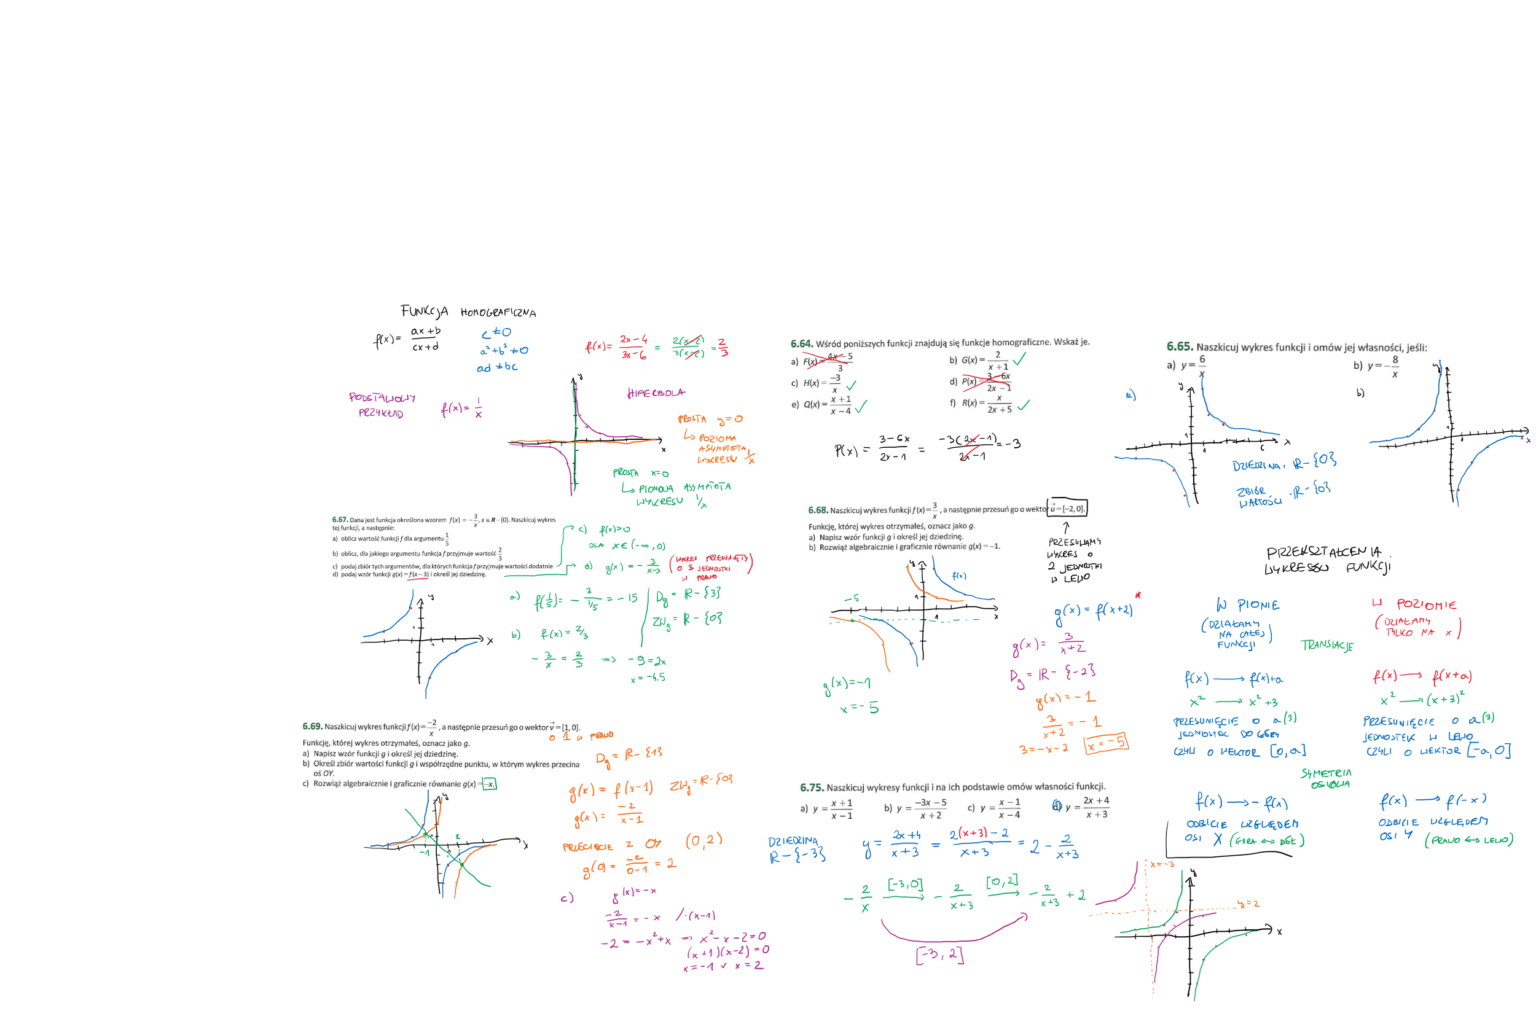 FUNKCJA HOMOGRAFICZNA
f(x) = (ax+b)/(cx+d)
c≠0
a²+b²≠0
ad≠bc
f(x) = (2x-4)/(3x-6) = 2(x-2)/3(x-2) = 2/3
PODSTAWOWY PRZYKŁAD f(x) = 1/x
HIPERBOLA
PROSTA y=0
↳ POZIOMA
ASYMPTOTA
WYKRESU 1/x
PROSTA x=0
↳ PIONOWA ASYMPTOTA
WYKRESU 1/x
x
y
6.67. Dana jest funkcja określona wzorem f(x) = -3/x, x ∈ R - {0}. Naszkicuj wykres
tej funkcji, a następnie:
a) oblicz wartość funkcji f dla argumentu 1/5
b) oblicz, dla jakiego argumentu funkcja f przyjmuje wartość 2/3
c) podaj zbiór tych argumentów, dla których funkcja f przyjmuje wartości dodatnie
d) podaj wzór funkcji g(x) = f(x – 3) i określ jej dziedzinę.
c) f(x)>0
DLA x∈(-∞, 0)
d) g(x) = -3/(x-3) (WYKRES PRZESUNIĘTY
O 3 JEDNOSTKI
W PRAWO)
a) f(1/5) = -3/(1/5) = -15
Dg = R-{3}
ZWg = R-{0}
b) f(x) = 2/3
-3/x = 2/3 => -9=2x
x=-4.5
6.69. Naszkicuj wykres funkcji f(x) = -2/x, a następnie przesuń go o wektor v = [1, 0].
O 1 W PRAWO
Funkcję, której wykres otrzymałeś, oznacz jako g.
a) Napisz wzór funkcji g i określ jej dziedzinę.
b) Określ zbiór wartości funkcji g i współrzędne punktu, w którym wykres przecina
oś OY.
c) Rozwiąż algebraicznie i graficznie równanie g(x) = –x.
Dg = R-{1}
g(x) = f(x-1) ZWg = R-{0}
g(x) = -2/(x-1)
PRZECIĘCIE Z OY (0,2)
g(0) = -2/(0-1) = 2
c) g(x) = -x
-2/(x-1) = -x /·(x-1)
-2 = -x²+x => x²-x-2=0
(x+1)(x-2)=0
x=-1 ∨ x=2
-1
2
6.64. Wśród poniższych funkcji znajdują się funkcje homograficzne. Wskaż je.
a) F(x) = (4x – 5)/3
b) G(x) = 2/(x + 1) ✓
c) H(x) = -3/x ✓
d) P(x) = (3 – 6x)/(2x – 1)
e) Q(x) = (x + 1)/(x – 4) ✓
f) R(x) = x/(2x + 5) ✓
P(x) = (3-6x)/(2x-1) = -3(2x-1)/(2x-1) = -3
6.68. Naszkicuj wykres funkcji f(x) = 3/x, a następnie przesuń go o wektor u = [–2, 0].
Funkcję, której wykres otrzymałeś, oznacz jako g.
a) Napisz wzór funkcji g i określ jej dziedzinę.
b) Rozwiąż algebraicznie i graficznie równanie g(x) = –1.
↑
PRZESUWAMY
WYKRES O
2 JEDNOSTKI
W LEWO
f(x)
-5
g(x) = f(x+2)
g(x) = 3/(x+2)
Dg = R-{-2}
g(x) = -1
3/(x+2) = -1
3=-x-2 x=-5
g(x)=-1
x=-5
6.75. Naszkicuj wykresy funkcji i na ich podstawie omów własności funkcji.
a) y = (x + 1)/(x – 1) b) y = (–3x – 5)/(x + 2) c) y = (x – 1)/(x – 4) d) y = (2x + 4)/(x + 3)
DZIEDZINA
R-{-3}
y = (2x+4)/(x+3) = (2(x+3)-2)/(x+3) = 2 - 2/(x+3)
-2/x [-3,0] → -2/(x+3) [0,2] → -2/(x+3) + 2
[-3, 2]
x=-3
y=2
6.65. Naszkicuj wykres funkcji i omów jej własności, jeśli:
a) y = 6/x b) y = –8/x
a)
b)
DZIEDZINA: R-{0}
ZBIÓR
WARTOŚCI: R-{0}
PRZEKSZTAŁCENIA
WYKRESÓW FUNKCJI
W PIONIE
(DZIAŁAMY
NA CAŁEJ
FUNKCJI)
W POZIOMIE
(DZIAŁAMY
TYLKO NA x)
TRANSLACJE
f(x) → f(x)+a
x² → x²+3
PRZESUNIĘCIE O a (3)
JEDNOSTEK DO GÓRY
CZYLI O WEKTOR [0,a]
f(x) → f(x+a)
x² → (x+3)²
PRZESUNIĘCIE O a (3)
JEDNOSTEK W LEWO
CZYLI O WEKTOR [-a,0]
SYMETRIA
OSIOWA
f(x) → -f(x)
ODBICIE WZGLĘDEM
OSI X (GÓRA ↔ DÓŁ)
f(x) → f(-x)
ODBICIE WZGLĘDEM
OSI Y (PRAWO ↔ LEWO)